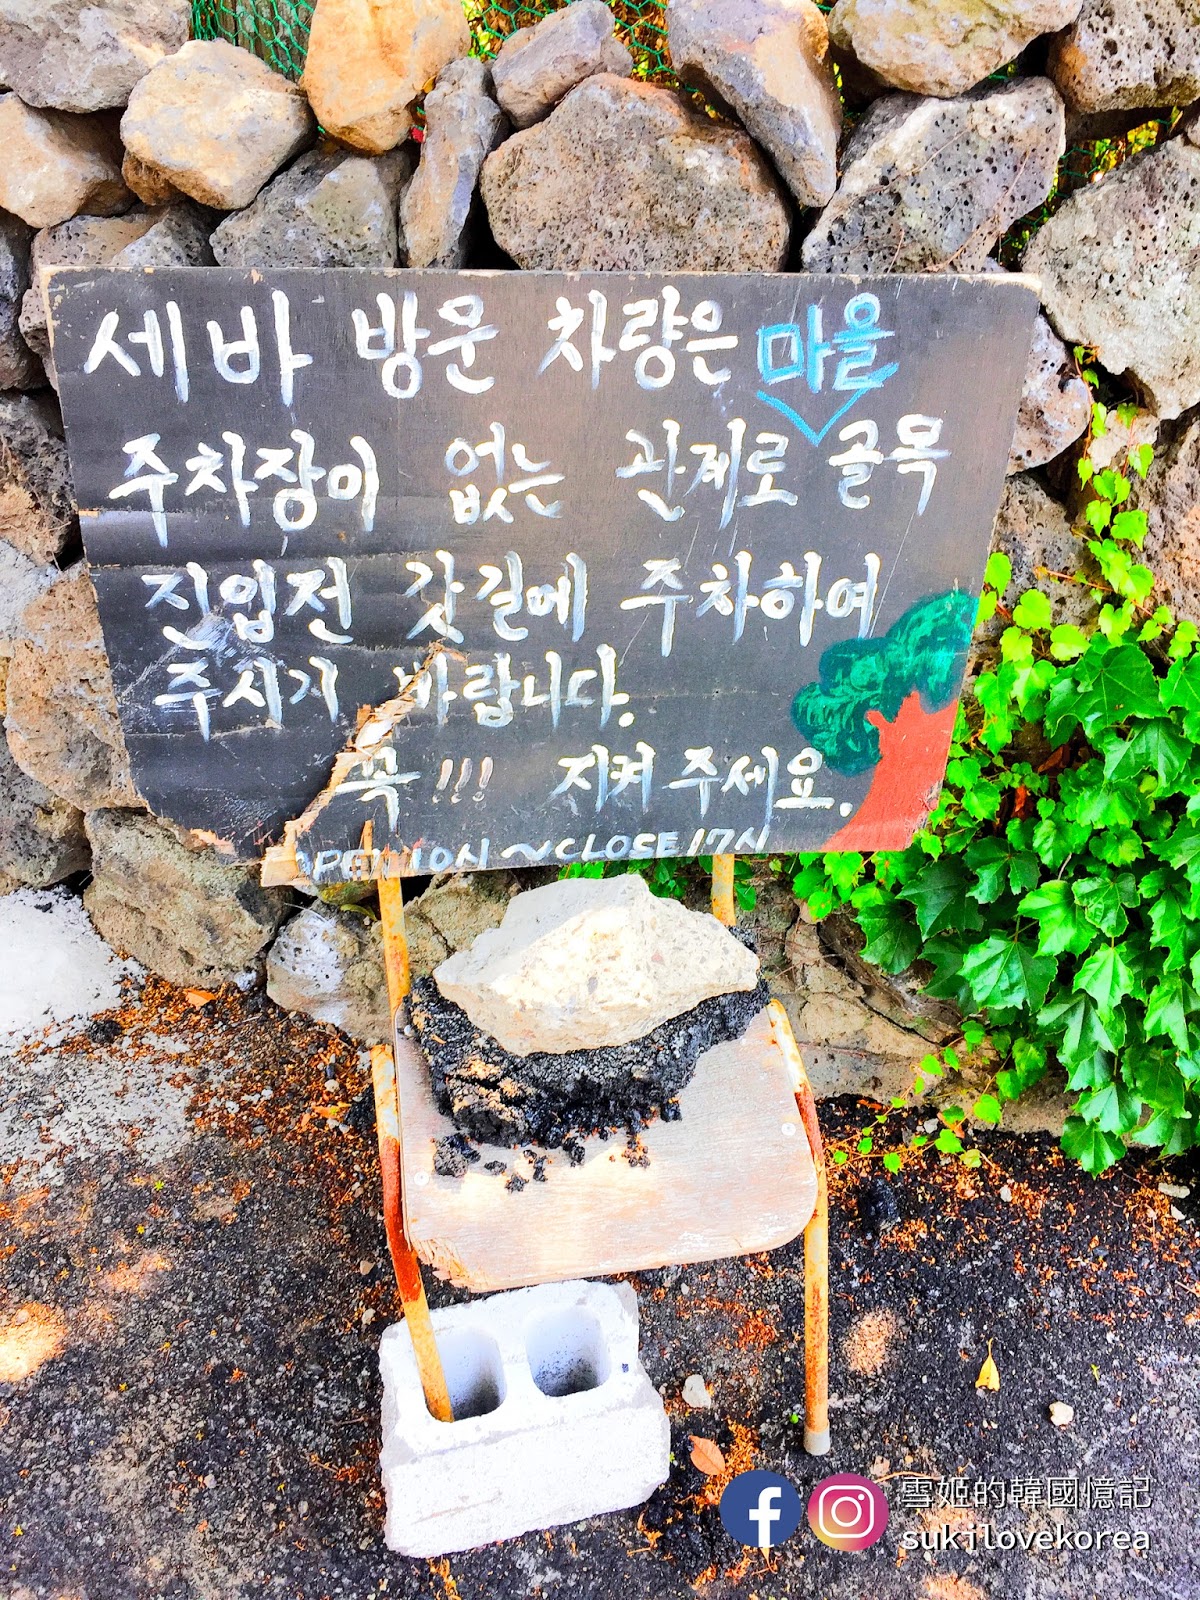 세바 방문 차량은 마을
주차장이 없는 관계로 골목
진입전 갓길에 주차하여
주시기 바랍니다.
꼭!!! 지켜 주세요.
OPEN 10시 ~ CLOSE 17시
雪姬的韓國憶記
sukilovekorea